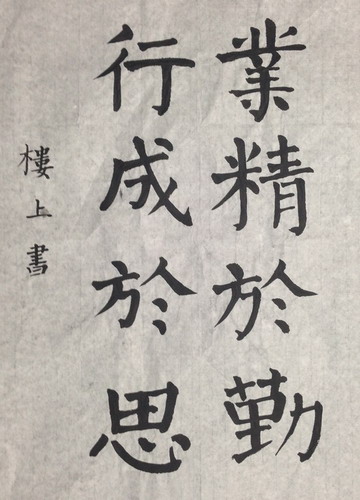 業精於勤
行成於思
樓上書